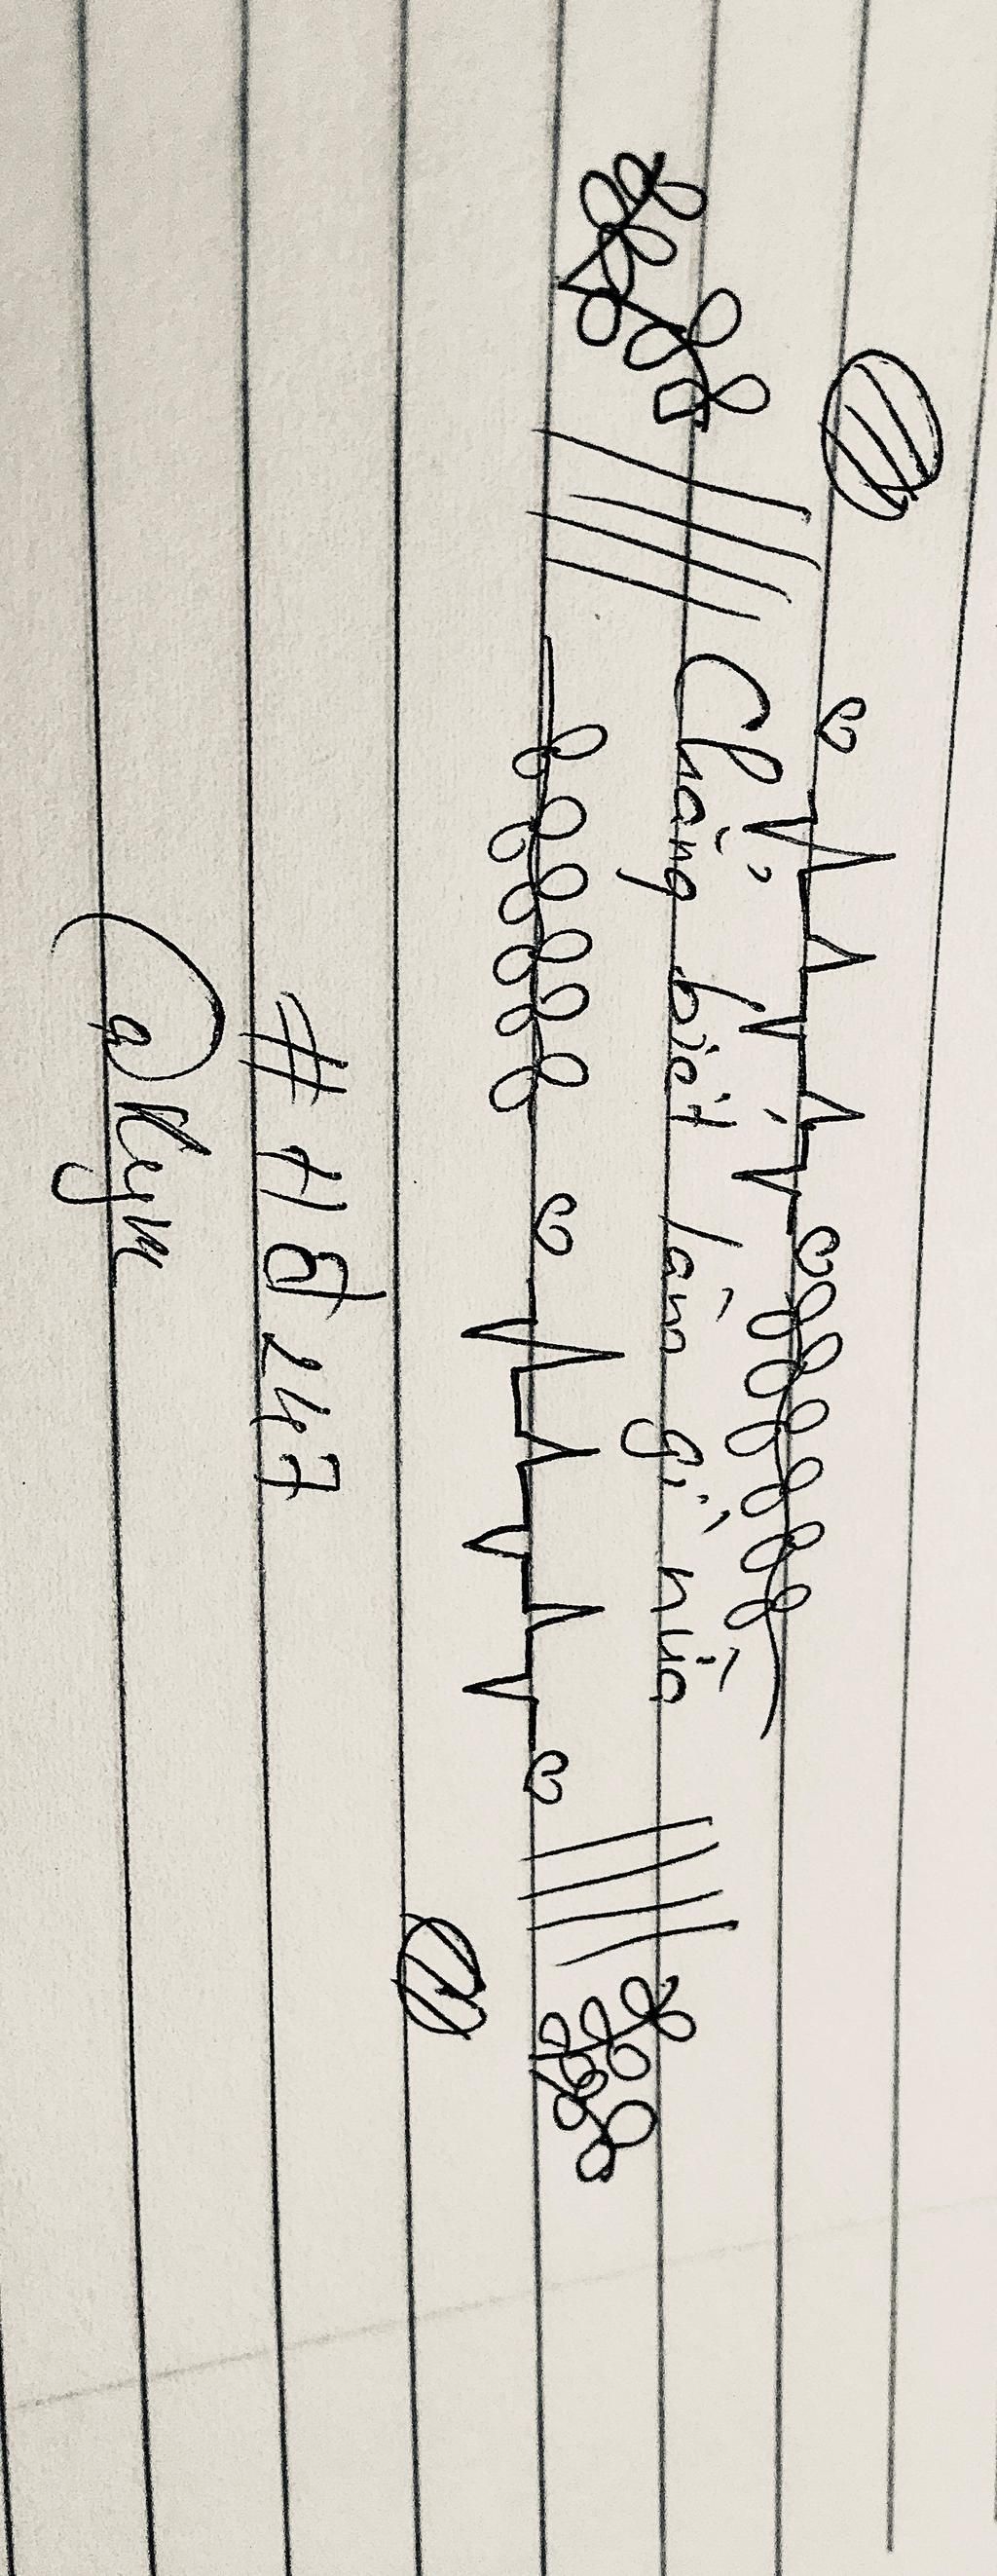 Chẳng biết làm gì nữa
#Hỗ247
@Kym